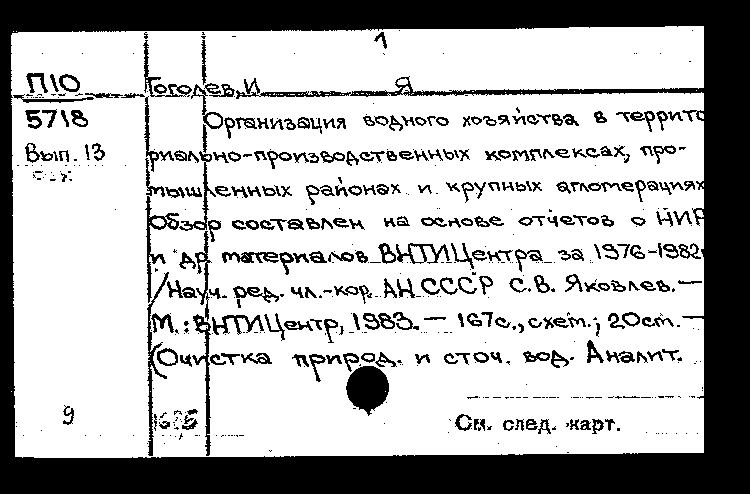 1
П10 Гоголев, И Я
5718 Организация водного хозяйства в террито
Вып. 13 риально-производственных комплексах, про-
мышленных районах и крупных агломерациях
Обзор составлен на основе отчетов о НИР
и др материалов ВНТИЦентра за 1976-1982г
/Науч. ред. чл.-кор АН СССР С.В. Яковлев.—
М.: ВНТИЦентр, 1983. — 167с., схем.; 20см. —
(Очистка природ. и сточ. вод. Аналит.
9 См. след. карт.